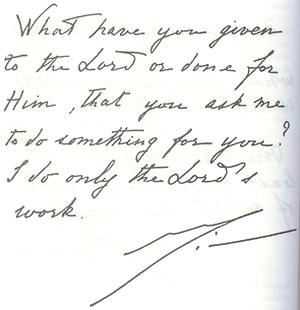 What have you given
to the Lord or done for
Him, that you ask me
to do something for you?
I do only the Lord's
work.